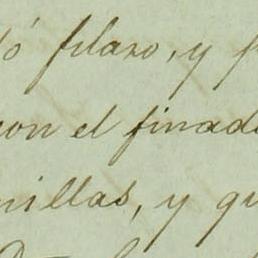 ó filaso, y
con el finad
nillas, y qu